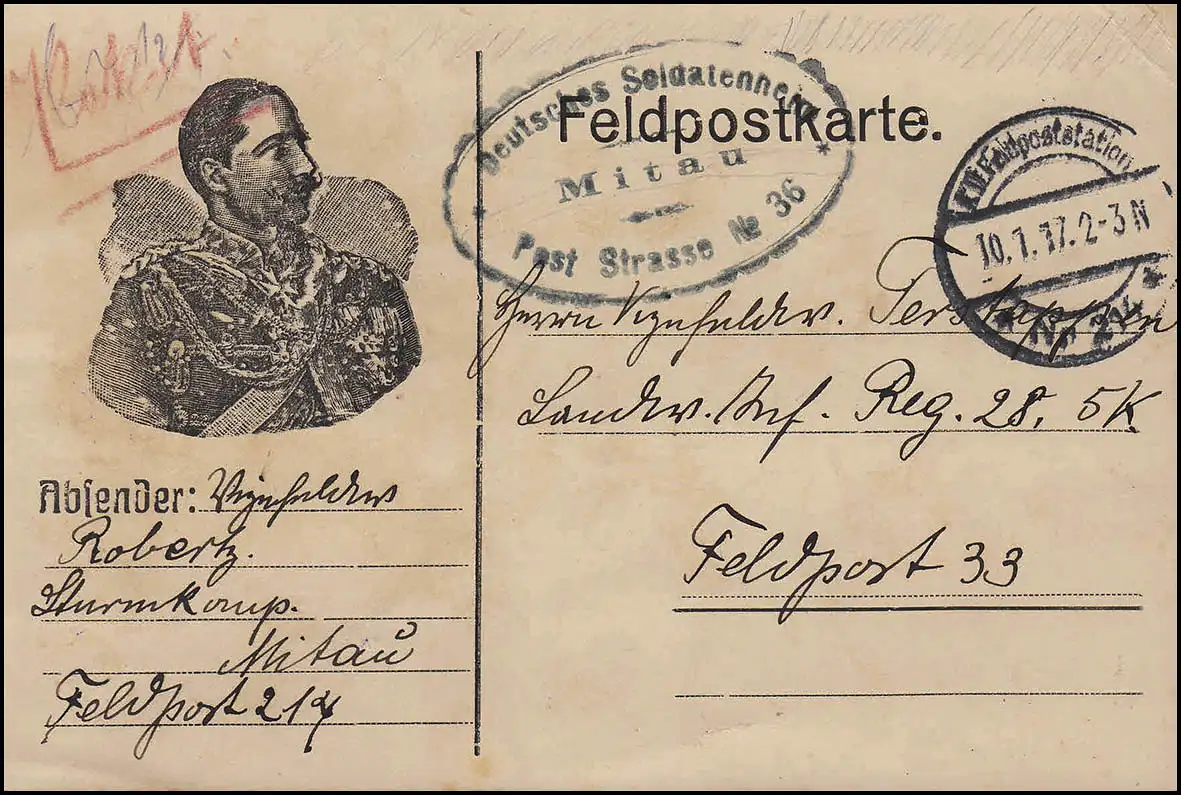 Feldpostkarte.
Deutsches Soldatenheim
Mitau
Post Strasse № 36
K.D. Feldpoststation
10.1.17. 2-3 N
Herrn Vizefeldw. Terstappen
Landw. Inf. Reg. 28, 5K
Feldpost 33
Absender: Vizefeldw
Robertz.
Sturmkomp.
Mitau
Feldpost 214